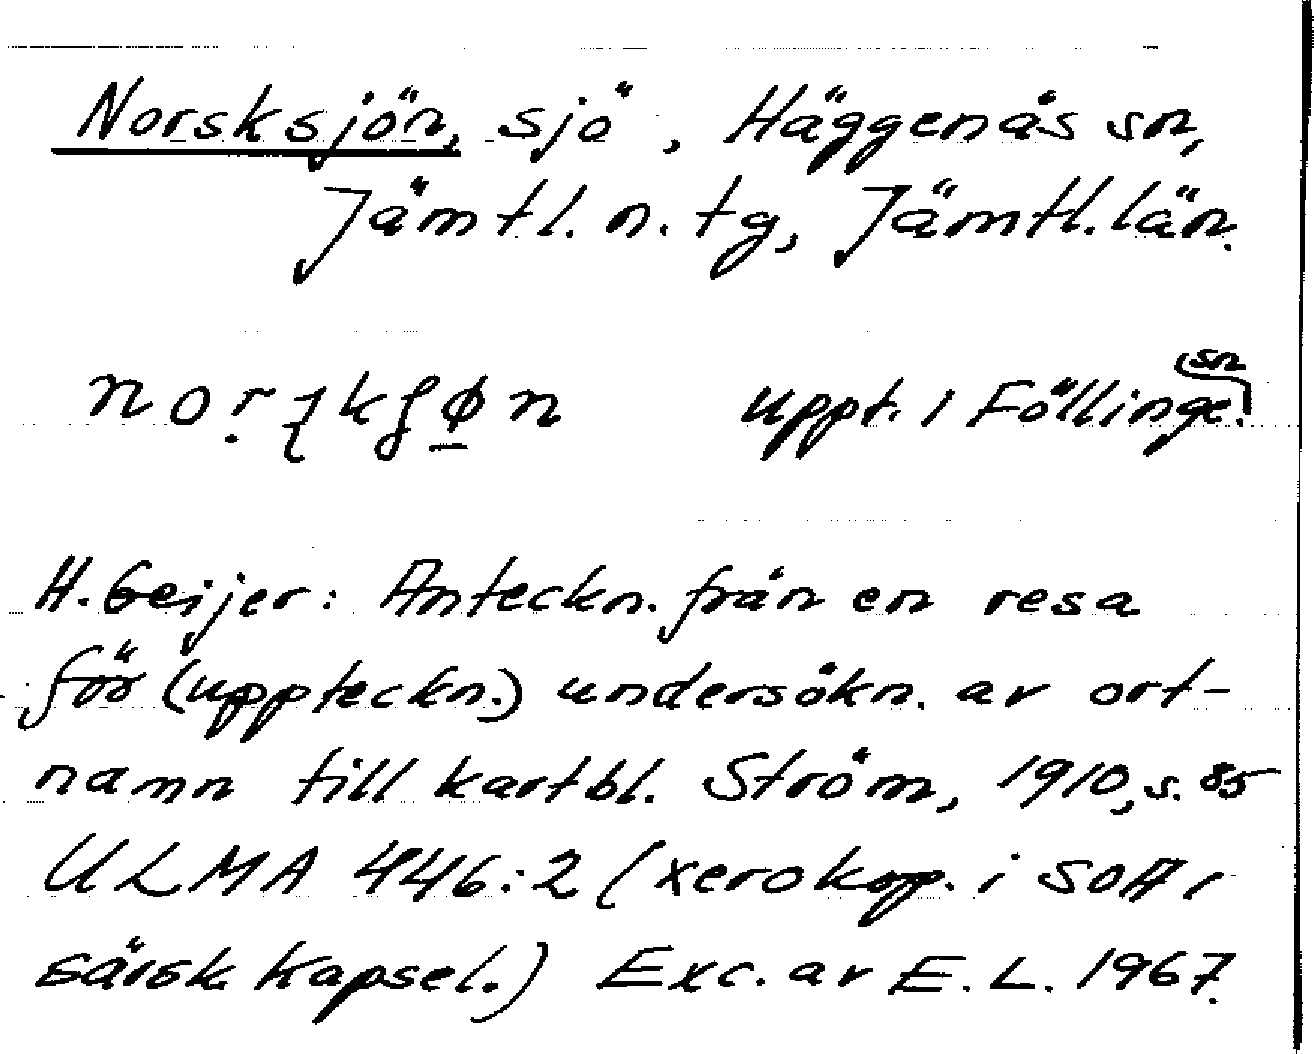 Norsksjön, sjö, Häggenås sn,
Jämtl. n. tg, Jämtl. län.
uppt. i Föllinge sn.
H. Geijer: Anteckn. från en resa
för (uppteckn.) undersökn. av ort-
namn till kartbl. Ström, 1910, s. 85
ULMA 446:2 (xerokop. i SOA i
särsk kapsel.) Exc. av E. L. 1967.